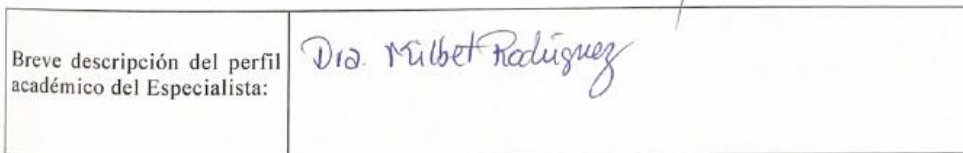 Breve descripción del perfil
académico del Especialista:
Dra. Milbet Rodríguez